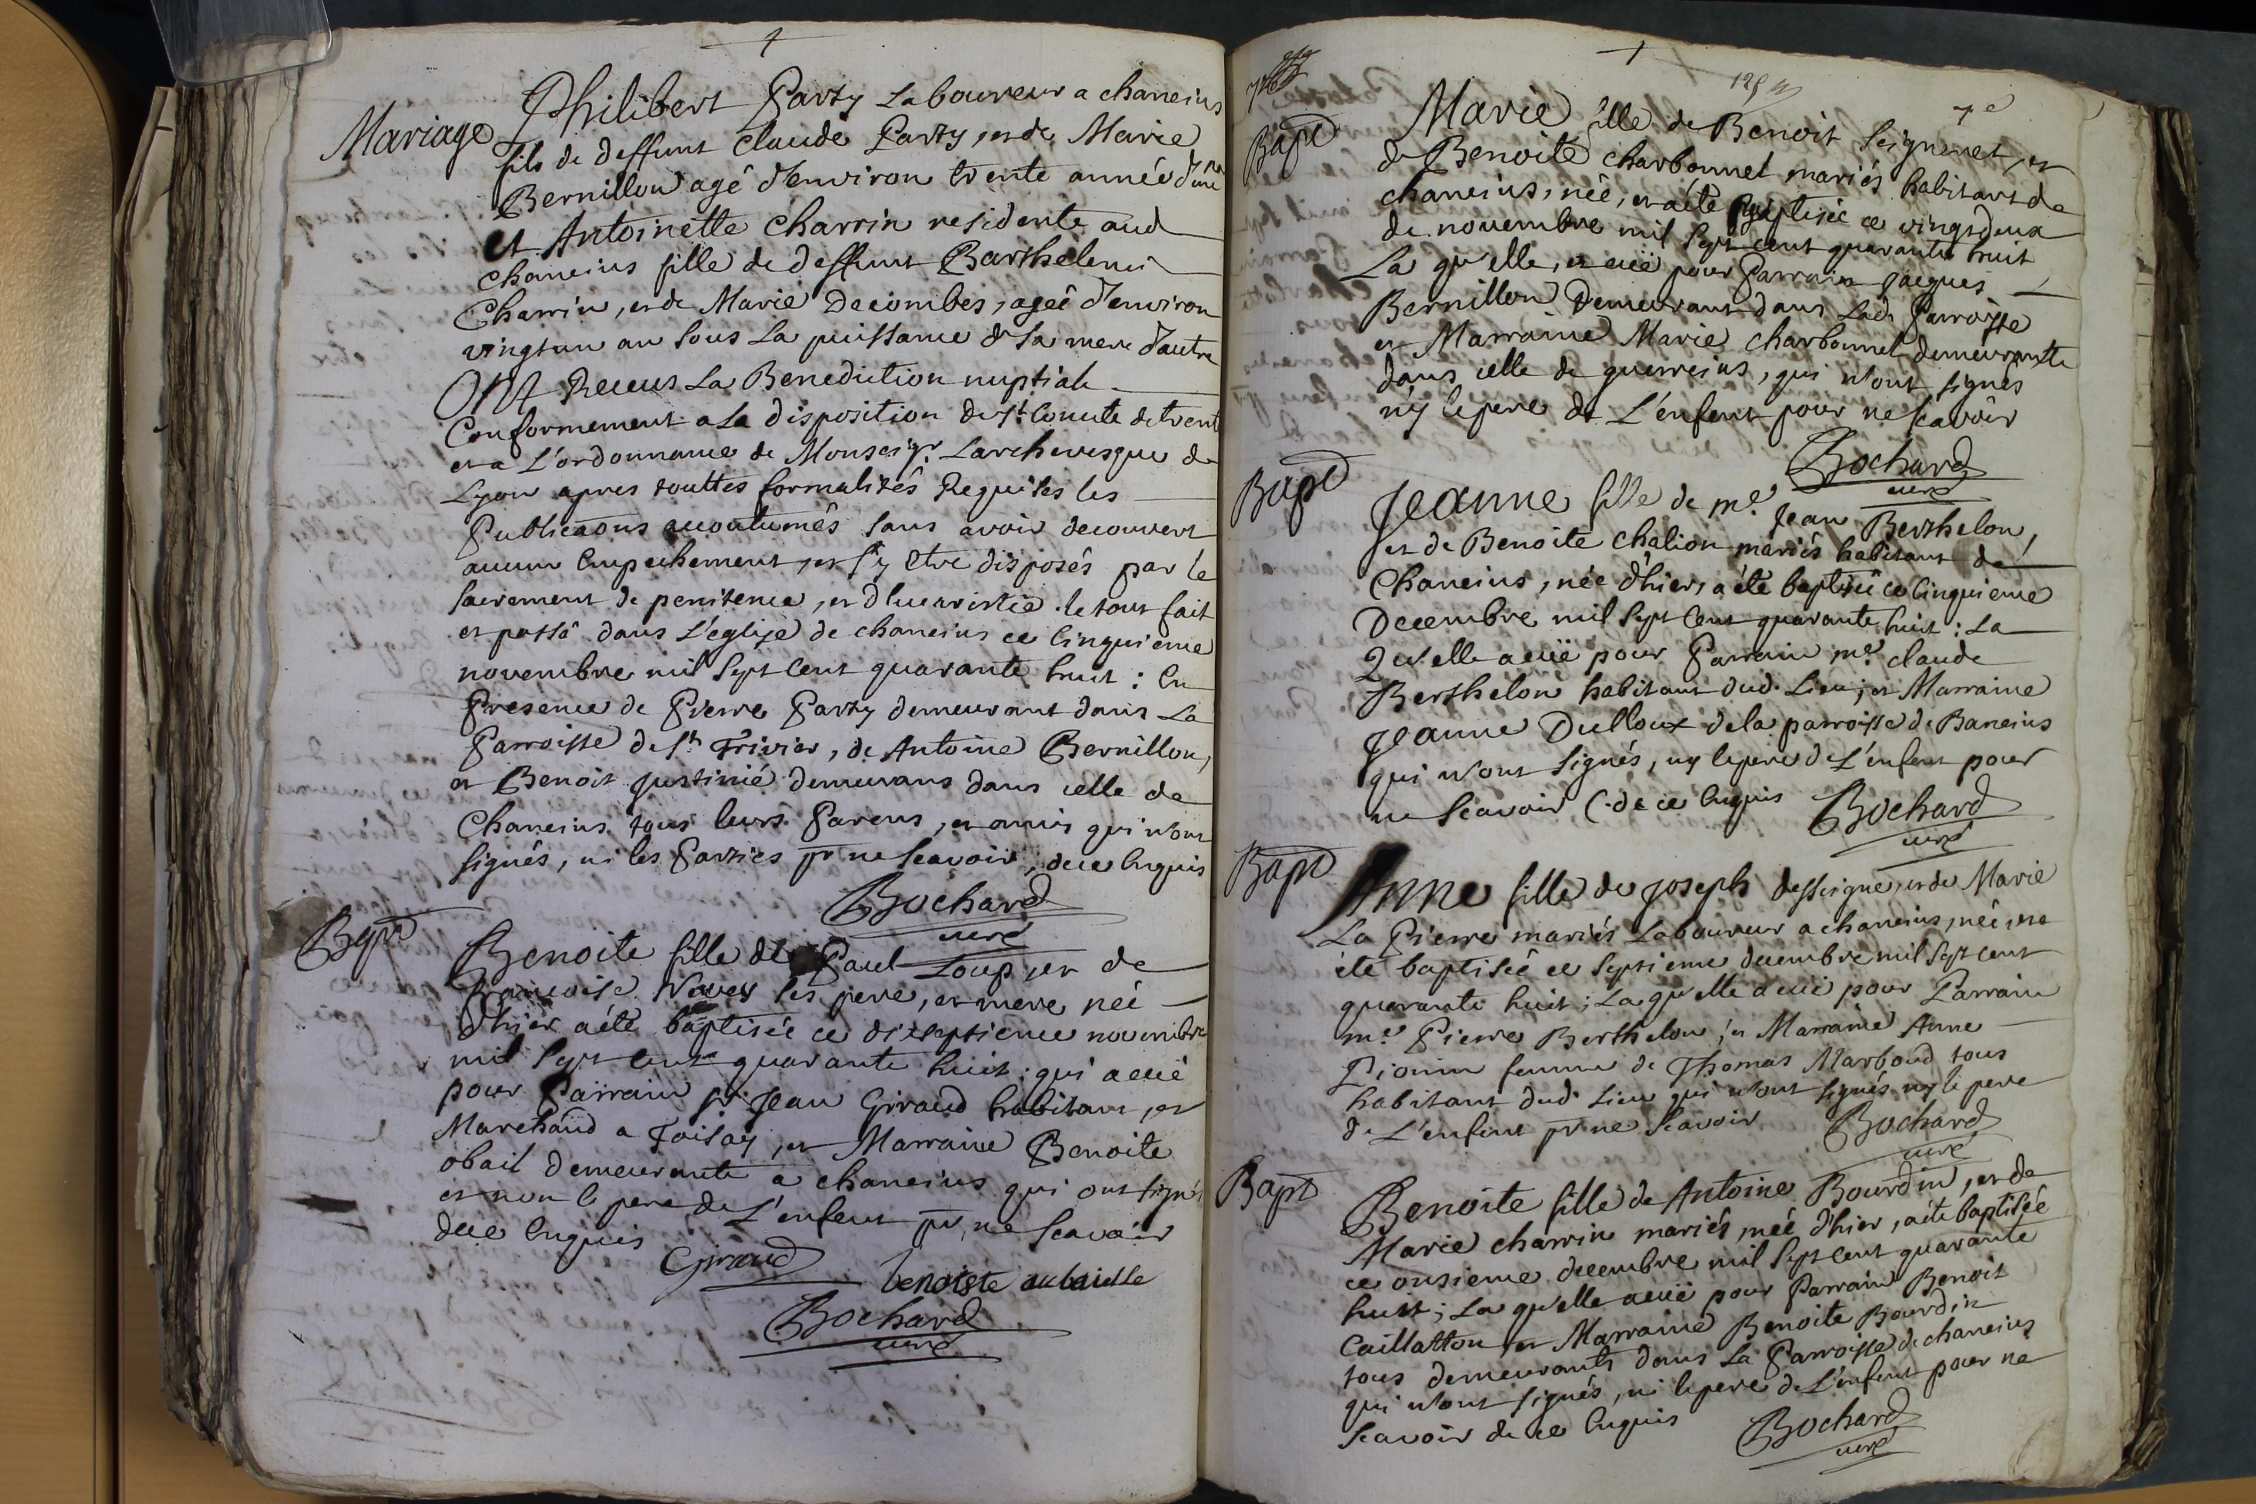 Mariage
Philibert Party Laboureur a chaneins
fils de deffunt Claude Party, et de Marie
Bernillon agé d'environ trente année d'une
et Antoinette Charrin residente aud
chaneins fille de deffunt Barthelemi
Charrin, et de Marie Decombes, ageé d'environ
vingt un an sous La puissance de sa mere d'autre
Ont Receus La Benediction nuptiale
Conformement a La disposition du St Concile de trente
et a L'ordonnance de Monseigr. Larchevesque de
Lyon apres touttes formalités Requises les
Publicaons accoutumés sans avoir decouvert
aucun Empechement, et s'y etre disposés par le
sacrement de penitence, et d'lucaristie. le tout fait
et passé dans L'eglise de chaneins ce Cinquieme
novembre mil sept cent quarante huit : En
Presence de Pierre Party demeurant dans La
Parroisse de St Trivier, de Antoine Bernillon,
et Benoit Justinié demeurans dans celle de
Chaneins tous leurs Parens, et amis qui n'ont
signés, ni les Parties pr ne scavoir, de ce Enquis
Bochard
curé
Bapt
Benoite fille de Paul Loup, et de
francoise Noves ses pere, et mere née
d'hier a été baptisée ce dixseptieme novembre
mil sept cent quarante huit ; qui a eüe
pour Parrain sr. Jean Giraud habitant, et
Marchand a Toisay, et Marraine Benoite
obail demeurante a chaneins qui ont signés
et non le pere de L'enfent pr, ne scavoir
de ce Enquis
Giraud
benoiste aubaielle
Bochard
curé
7e
Bapt
Marie fille de Benoit Seignemet, et
de Benoite charbonnet mariés habitant de
chaneins, née, et a été Baptisée ce vingtdeux
de novembre mil sept cent quarante huit
La qu'elle, a eüe pour Parrain Jacques
Bernillon Demeurant dans Lad. Parroisse
et Marraine Marie charbonnet demeurante
dans celle de guerreins, qui n'ont signés
n'y le pere de L'enfent pour ne scavoir
Bochard
curé
Bapt
Jeanne fille de me. Jean Berthelon,
et de Benoite chalion mariés habitant de
Chaneins, née d'hier, a été baptisée ce Cinquieme
Decembre mil sept Cent quarante huit : La
Qu'elle a eüe pour Parrain me. claude
Berthelon habitant dud. Lieu ; et Marraine
Jeanne Dulloux de la parroisse de Baneins
qui n'ont signés, ny le pere de L'enfent pour
ne scavoir (. de ce Enquis
Bochard
curé
Bapt
Anne fille de Joseph desseigne, et de Marie
La Pierre mariés Laboureur a chaneins, née, et a
été baptiseé ce septieme decembre mil sept cent
quarante huit ; La qu'elle a eüe pour Parrain
me. Pierre Berthelon, et Marraine Anne
Pionin femme de Thomas Marboud tous
habitant dud. Lieu qui n'ont signés ny le pere
de L'enfent pr ne scavoir
Bochard
curé
Bapt
Benoite fille de Antoine Bourdin, et de
Marie charrin mariés, née d'hier, a été baptisée
ce onsieme decembre mil sept cent quarante
huit ; La qu'elle a eüe pour Parrain Benoit
Caillatton, et Marraine Benoite Bourdin
tous demeurants dans La Parroisse de chaneins
qui n'ont signés, ni le pere de L'enfent pour ne
scavoir de ce Enquis
Bochard
curé